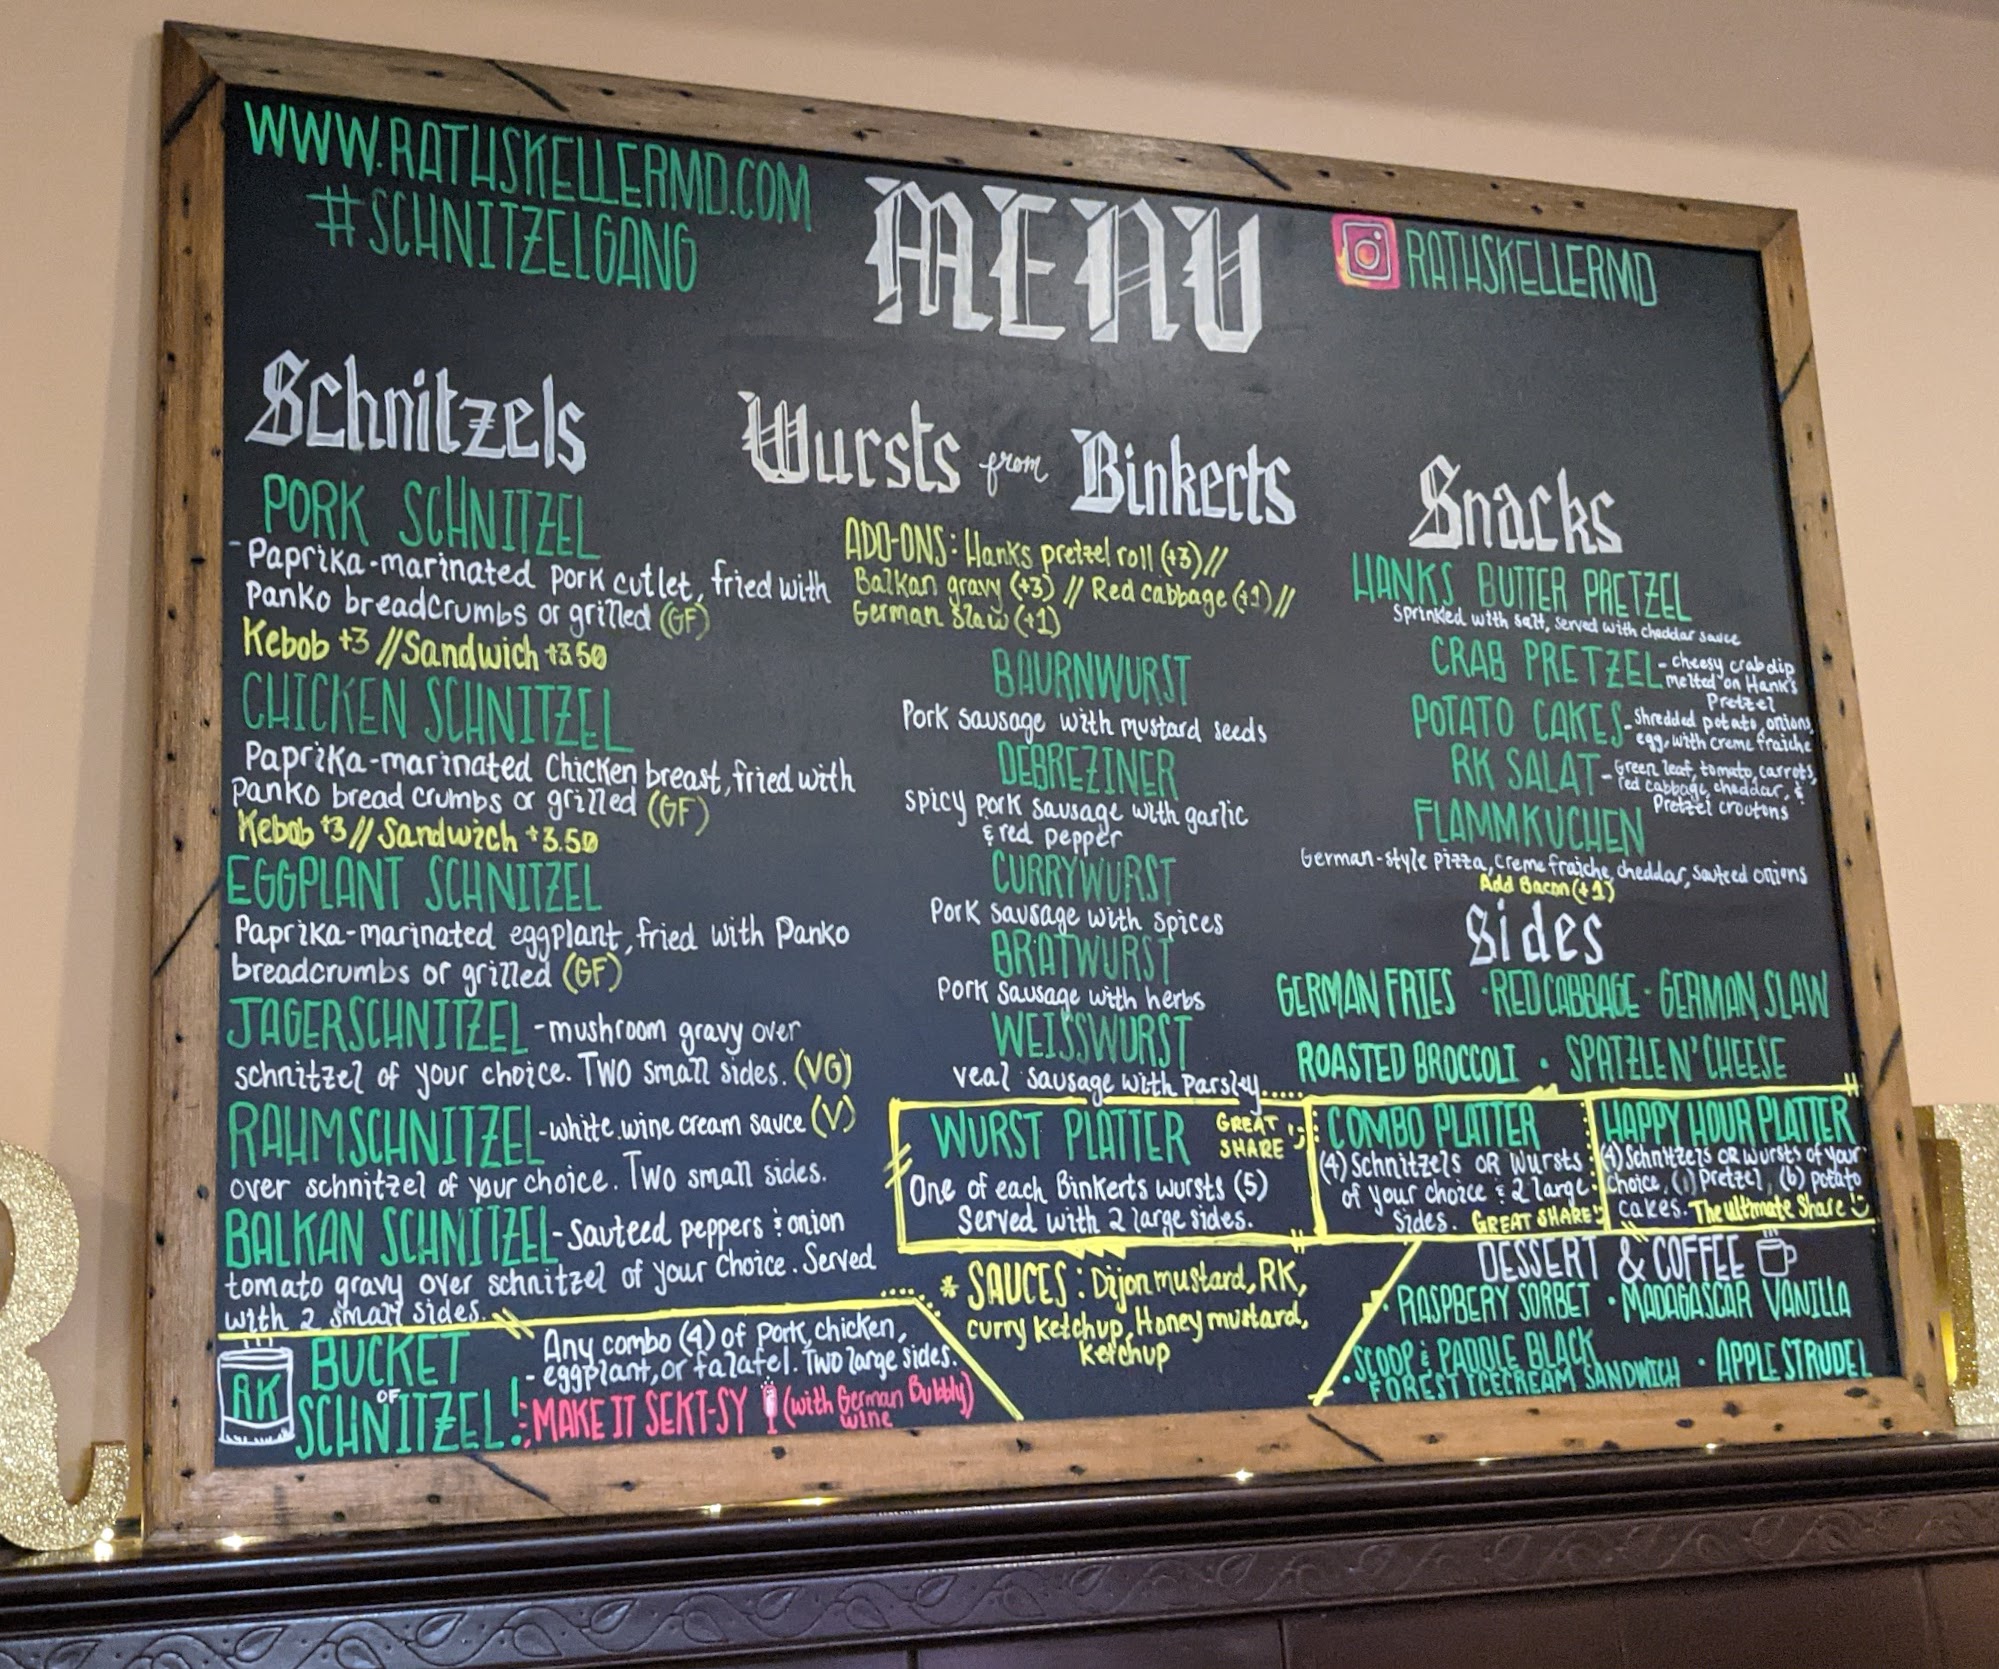 WWW.RATHSKELLERMD.COM
#SCHNITZELGANG
MENU
RATHSKELLERMD
Schnitzels
PORK SCHNITZEL
- Paprika-marinated pork cutlet, fried with
Panko breadcrumbs or grilled (GF)
Kebob +3 // Sandwich +3.50
CHICKEN SCHNITZEL
Paprika-marinated Chicken breast, fried with
Panko bread crumbs or grilled (GF)
Kebob +3 // Sandwich +3.50
EGGPLANT SCHNITZEL
Paprika-marinated eggplant, fried with Panko
breadcrumbs or grilled (GF)
JAGERSCHNITZEL - mushroom gravy over
schnitzel of your choice. TWO small sides. (VG)
RAHMSCHNITZEL - white wine cream sauce (V)
over schnitzel of your choice. Two small sides.
BALKAN SCHNITZEL - Sauteed peppers & onion
tomato gravy over schnitzel of your Choice. Served
with 2 small sides.
RK
BUCKET
OF
SCHNITZEL!
- Any combo (4) of pork, chicken,
- eggplant, or falafel. Two large sides.
MAKE IT SEKT-SY (with German Bubbly)
wine
Wursts from Binkerts
ADD-ONS: Hanks pretzel roll (+3) //
Balkan gravy (+3) // Red cabbage (+1) //
German Slaw (+1)
BAURNWURST
Pork sausage with mustard seeds
DEBREZINER
spicy pork sausage with garlic
& red pepper
CURRYWURST
Pork sausage with spices
BRATWURST
Pork sausage with herbs
WEISSWURST
veal sausage with parsley
WURST PLATTER
GREAT
SHARE :)
One of each Binkerts wursts (5)
Served with 2 large sides.
* SAUCES: Dijon mustard, RK,
curry Ketchup, Honey mustard,
Ketchup
Snacks
HANKS BUTTER PRETZEL
Sprinkled with salt, served with cheddar sauce
CRAB PRETZEL - cheesy crab dip
melted on Hank's
Pretzel
POTATO CAKES - Shredded potato, onions,
egg, with creme fraiche
RK SALAT - Green leaf, tomato, carrots,
red cabbage, cheddar, &
Pretzel croutons
FLAMMKUCHEN
German-style pizza, creme fraiche, cheddar, sauteed onions
Add Bacon (+1)
Sides
GERMAN FRIES · RED CABBAGE · GERMAN SLAW
ROASTED BROCCOLI · SPATZLE N' CHEESE
COMBO PLATTER
(4) Schnitzels OR Wursts
of your choice & 2 large
sides. GREAT SHARE :)
HAPPY HOUR PLATTER
(4) Schnitzels OR wursts of your
choice, (1) Pretzel, (6) potato
cakes. The Ultimate Share :)
DESSERT & COFFEE
· RASPBERY SORBET · MADAGASCAR VANILLA
· SCOOP & PADDLE BLACK
FOREST ICECREAM SANDWICH · APPLE STRUDEL